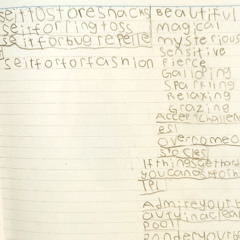 seittostoresnacks
seitforringtoss
seitforbugrepelle
seitfortorfashion
Beautiful
magical
mysterious
sensitive
fierce
Galloping
sparkling
Relaxing
Grazing
Acceptchallen
es!
overcomeo
stacles
Ifthingsgethard
youcanas
TP!
Admireyourb
autyinaclear
Pool!
Ponderyour